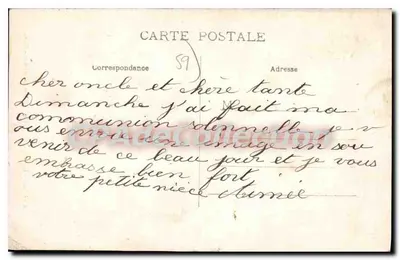 CARTE POSTALE
59
Correspondance
Adresse
cher oncle et chère tante
Dimanche j'ai fait ma
communion solennelle je v
ous envoi un image en sou
venir de ce beau jour et je vous
embrasse bien fort
votre petite niece Aimée